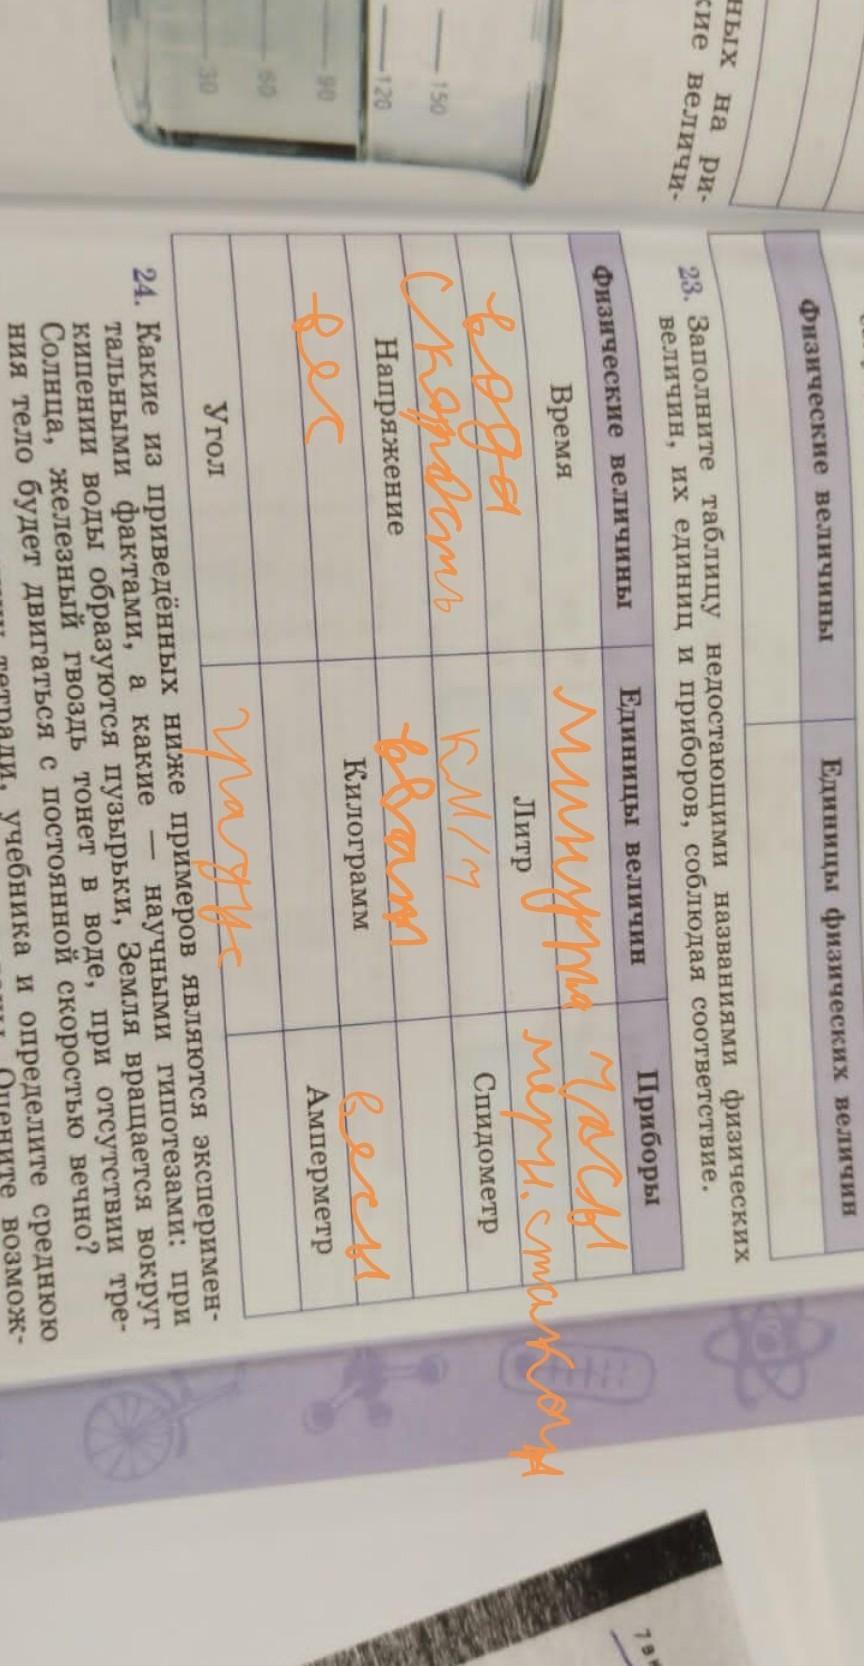 ных на ри-
кие величи-
30
60
90
120
150
Физические величины Единицы физических величин
23. Заполните таблицу недостающими названиями физических
величин, их единиц и приборов, соблюдая соответствие.
Физические величины Единицы величин Приборы
Время минута часы
вода Литр мерн. стакан
Скорость км/ч Спидометр
Напряжение ватт
вес Килограмм весы
Амперметр
Угол градус
24. Какие из приведённых ниже примеров являются эксперимен-
тальными фактами, а какие — научными гипотезами: при
кипении воды образуются пузырьки, Земля вращается вокруг
Солнца, железный гвоздь тонет в воде, при отсутствии тре-
ния тело будет двигаться с постоянной скоростью вечно?
тетради, учебника и определите среднюю
Оцените возмож-